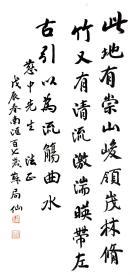 此地有崇山峻领茂林脩
竹又有清流激湍暎带左
右引以為流觴曲水
慈中先生 法正
戊辰春南汇百岁蘇局仙